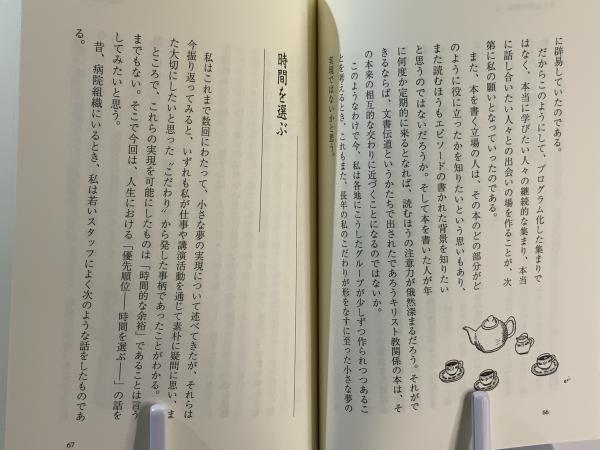 に辟易していたのである。
だからこのようにして、プログラム化した集まりで
はなく、本当に学びたい人々の継続的な集まり、本当
に話し合いたい人々との出会いの場を作ることが、次
第に私の願いとなっていったのである。
また、本を書く立場の人は、その本のどの部分がど
のように役に立ったかを知りたいという思いもあり、
また読むほうもエピソードの書かれた背景を知りたい
と思うのではないだろうか。そして本を書いた人が年
に何度か定期的に来るとなれば、読むほうの注意力が俄然深まるだろう。それがで
きるならば、文書伝道というかたちで出されたであろうキリスト教関係の本は、そ
の本来の相互的な交わりに近づくことになるのではないか。
このようなわけで今、私は各地にこうしたグループが少しずつ作られつつあるこ
とを考えるとき、これもまた、長年の私のこだわりが形をなすに至った小さな夢の
実現ではないかと思う。
66
時間を選ぶ
私はこれまで数回にわたって、小さな夢の実現について述べてきたが、それらは
今振り返ってみると、いずれも私が仕事や講演活動を通じて素朴に疑問に思い、ま
た大切にしたいと思った〝こだわり〟から発した事柄であったことがわかる。
ところで、これらの実現を可能にしたものは「時間的な余裕」であることは言う
までもない。そこで今回は、人生における「優先順位――時間を選ぶ――」の話を
してみたいと思う。
昔、病院組織にいるとき、私は若いスタッフによく次のような話をしたものであ
る。
67